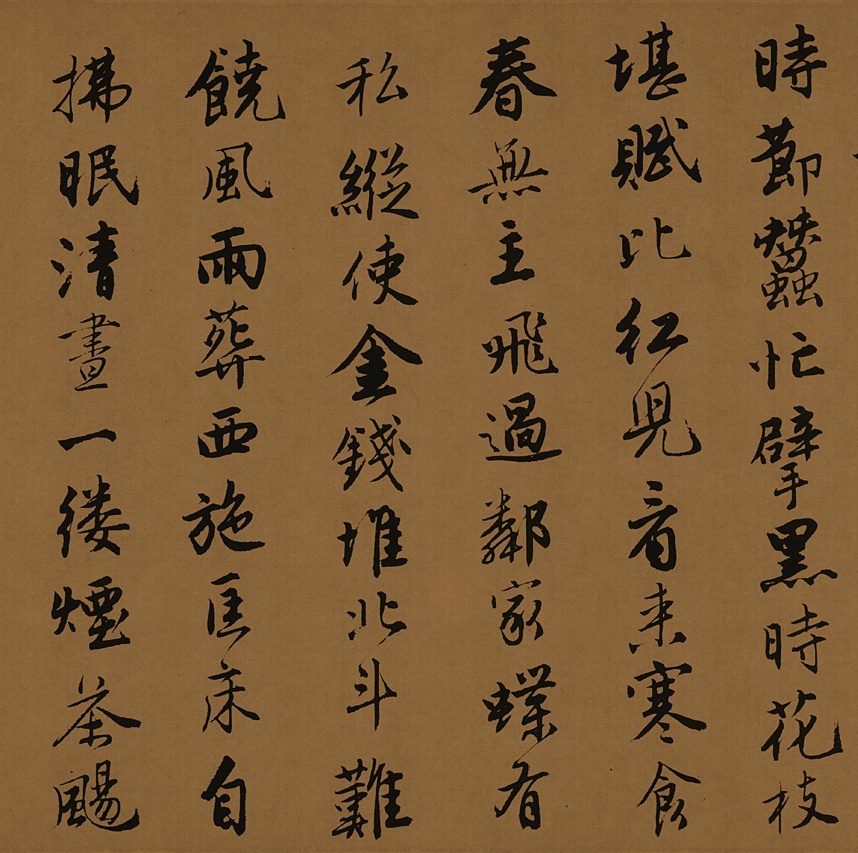 時節蠶忙擘黑時花枝
堪賦比紅兒看來寒食
春無主飛過鄰家蝶有
私縱使金錢堆北斗難
饒風雨葬西施匡床自
拂眠清晝一縷煙茶颺